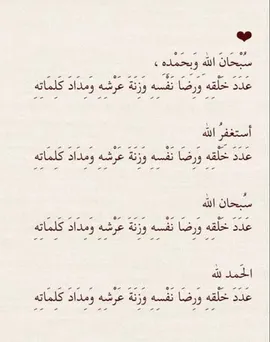 سُبْحَانَ اللهِ وَبِحَمْدِه ،
عَدَدَ خَلْقِهِ وَرِضَا نَفْسِهِ وَزِنَةَ عَرْشِهِ وَمِدَادَ كَلِمَاتِهِ
أستغفرُ الله
عَدَدَ خَلْقِهِ وَرِضَا نَفْسِهِ وَزِنَةَ عَرْشِهِ وَمِدَادَ كَلِمَاتِهِ
سُبحان الله
عَدَدَ خَلْقِهِ وَرِضَا نَفْسِهِ وَزِنَةَ عَرْشِهِ وَمِدَادَ كَلِمَاتِهِ
الحَمد لله
عَدَدَ خَلْقِهِ وَرِضَا نَفْسِهِ وَزِنَةَ عَرْشِهِ وَمِدَادَ كَلِمَاتِهِ